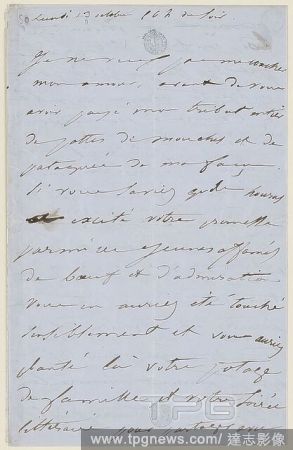 Lundi 13 octobre 10 h du soir.
Je ne veux pas me coucher
mon amour, avant de vous
avoir payé mon tribut entier
de pattes de mouches et de
pataquès de ma façon.
Si vous saviez quels hourras
a excité votre
parmi ces jeunes affamés
de bœuf et d'admiration
vous en auriez été touché
sensiblement et vous auriez
planté là votre potage
de famille et votre soirée
littéraire pour
TPG
www.tpgnews.com / 達志影像